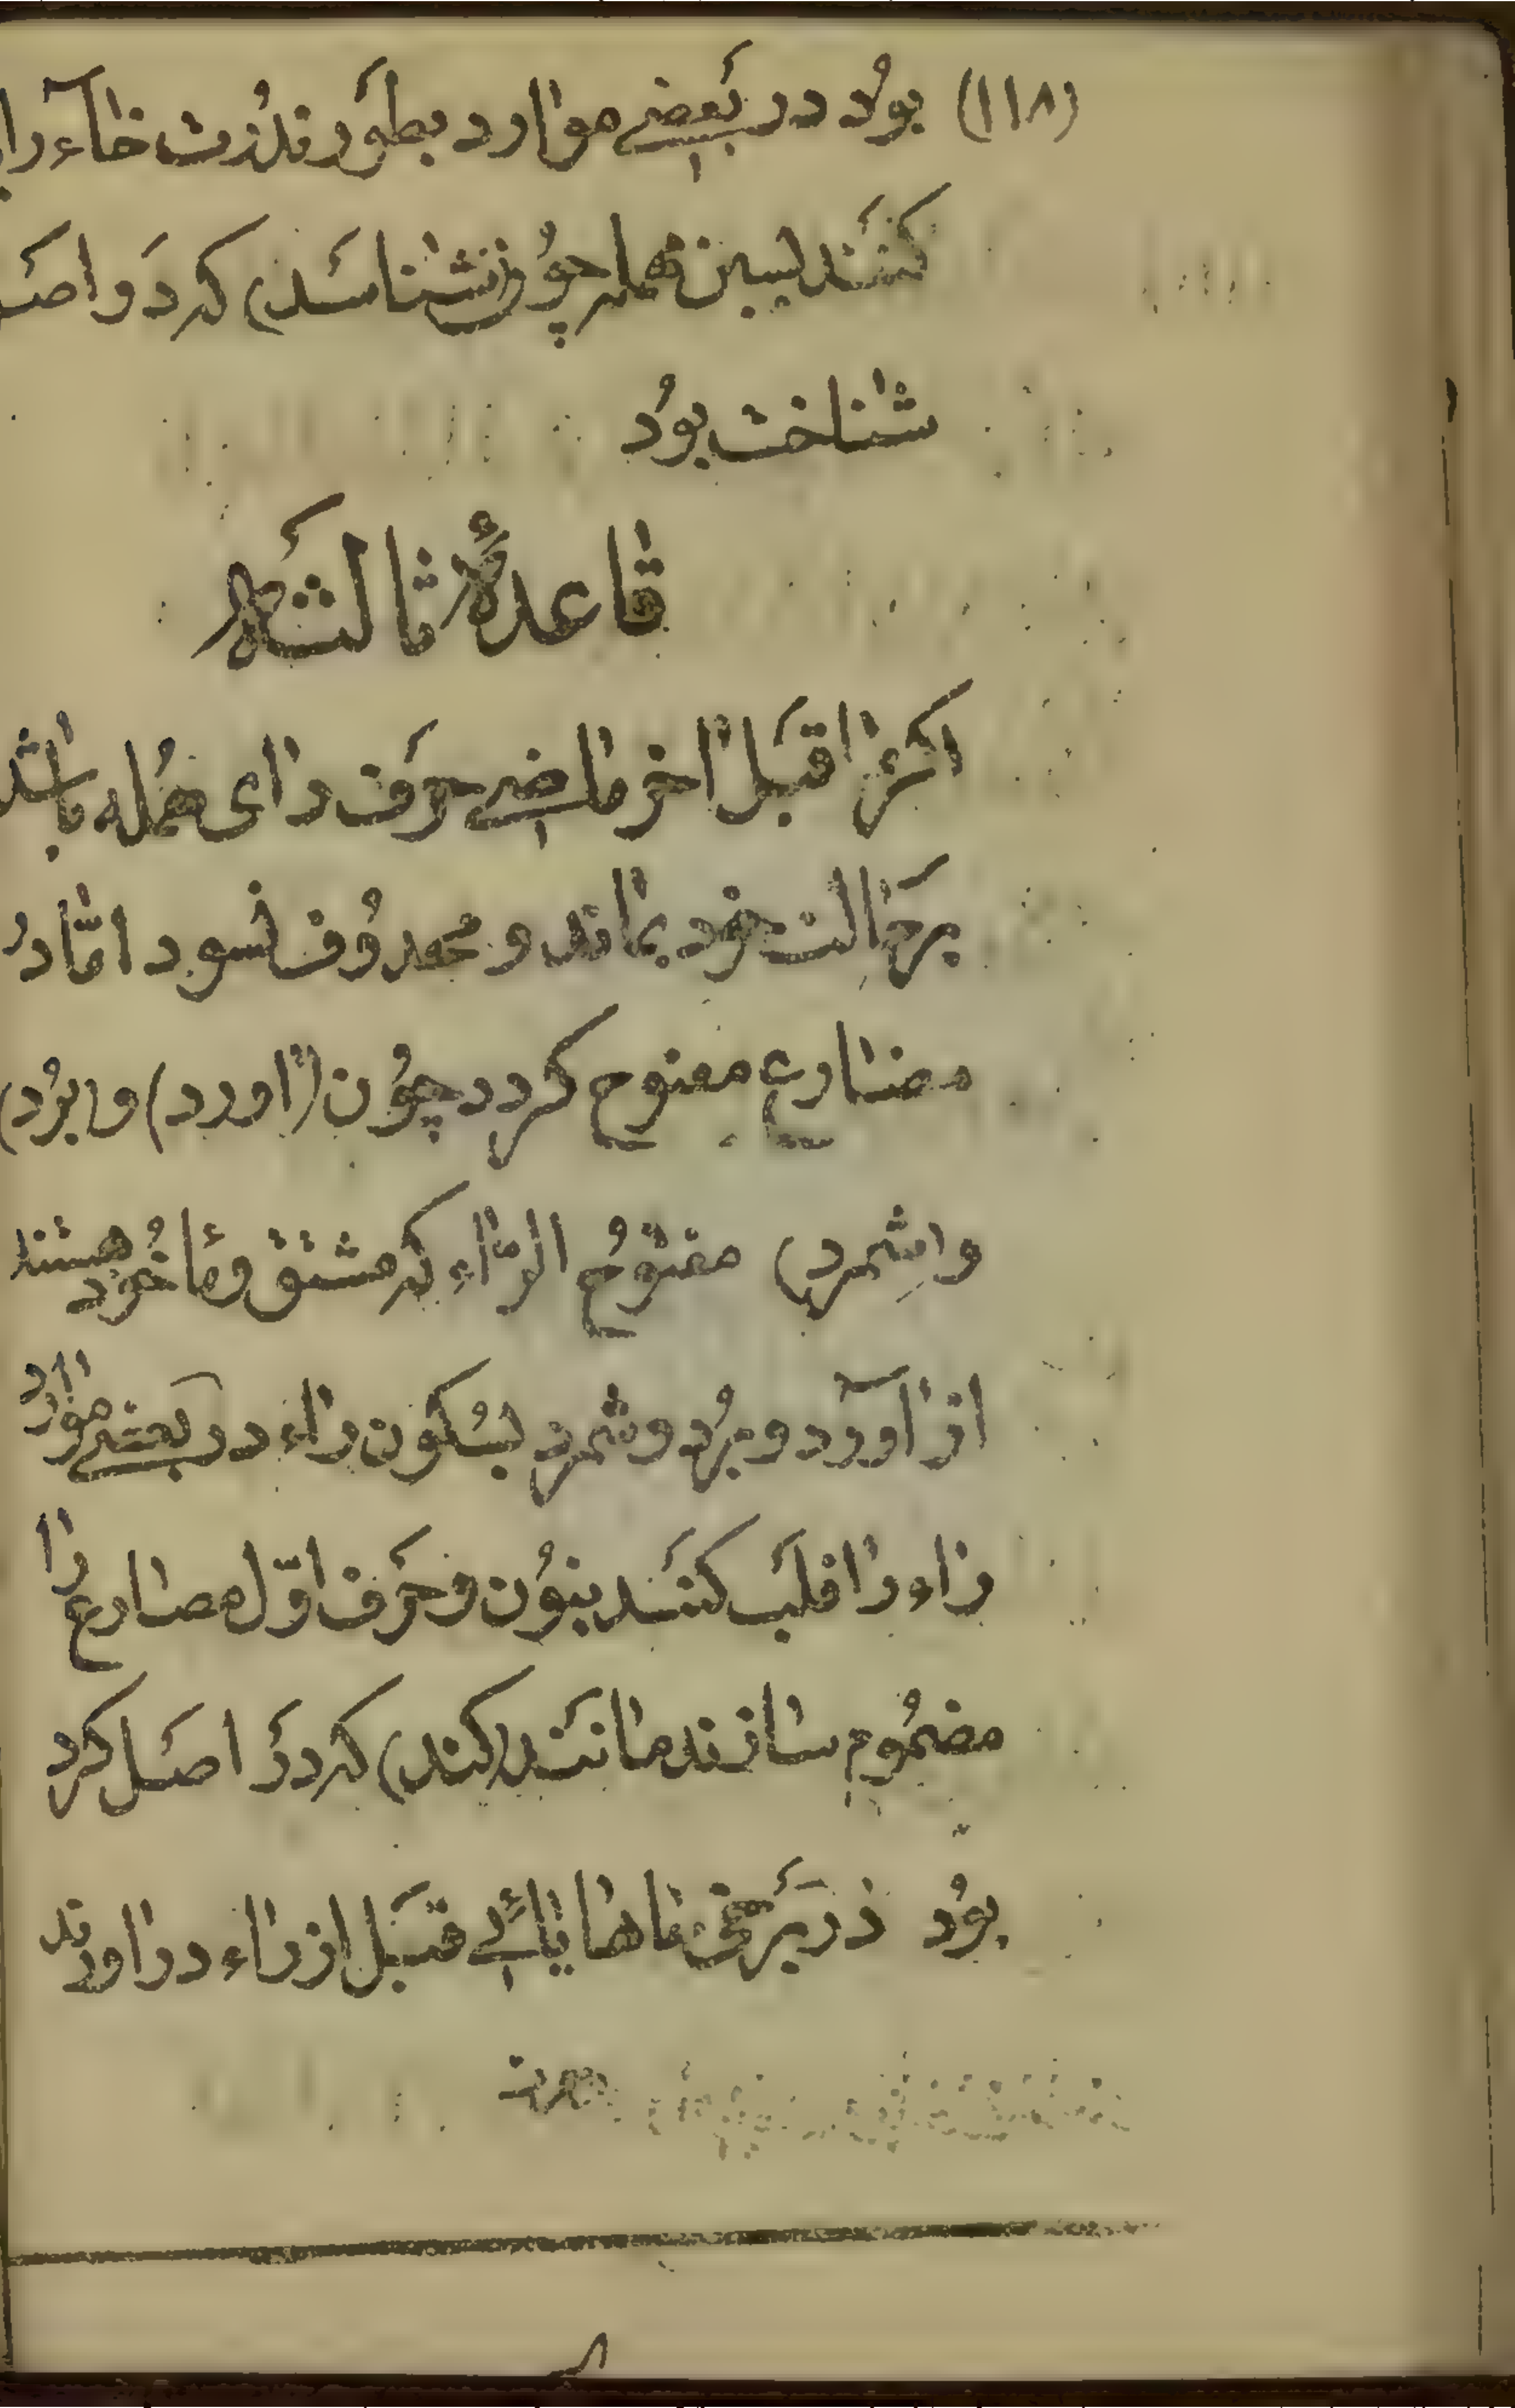 (١١٨) بوُد در بَعضے موٰارد بطَور ندُرت خاآء را
كنَنَد بسین مُهمله چوُن (شنٰاسَد) كه دَر اصَـ
شنٰاخت بوُد
قٰاعدهٔ ثالثَه
اكَر مٰاقبَل اٰخر مٰاضے حرَف رٰاى مُهمله باشد
برَحٰالت خود بمٰاند و محذوُف نشود امّا دُ
مضٰارع مفتوح كردد چوُن (اٰورد) و (برُد)
و (شمرد) مفتوُح الرّٰاء كه مشتق و مأخوُذ هستند
از اٰآورد و برُد و شمرد بسُكون رٰاء در بعضے موٰارد
رٰاء رٰا قلَب كنَند بنوُن و حرَف اوّل مضٰارع رٰا
مضموُم سٰازند مٰانَند (كند) كه دَر اصَل كرد
بوُد در برَخى جٰاها يٰائَے قبَل از رٰاء در اورند